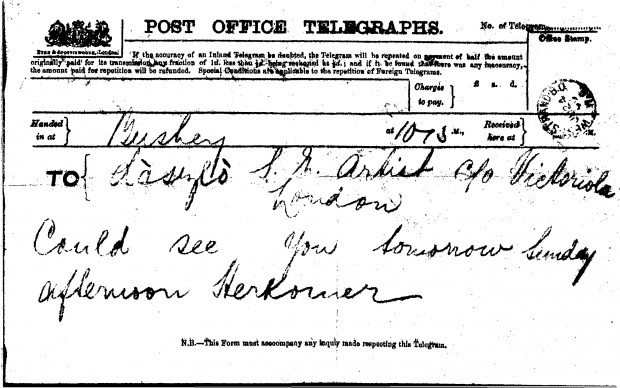 POST OFFICE TELEGRAPHS.
No. of Telegram
Office Stamp.
If the accuracy of an Inland Telegram be doubted, the Telegram will be repeated on payment of half the amount
originally paid for its transmission, any fraction of 1d. less than ½d. being reckoned as ½d.; and if it be found that there was any inaccuracy,
the amount paid for repetition will be refunded. Special Conditions are applicable to the repetition of Foreign Telegrams.
Charges to pay. £ s. d.
Handed in at Bushey at 10 M., Received here at
TO Làszlò Artist c/o Victoriola
London
Could see you tomorrow Sunday
afternoon Herkomer
N.B.—This Form must accompany any inquiry made respecting this Telegram.